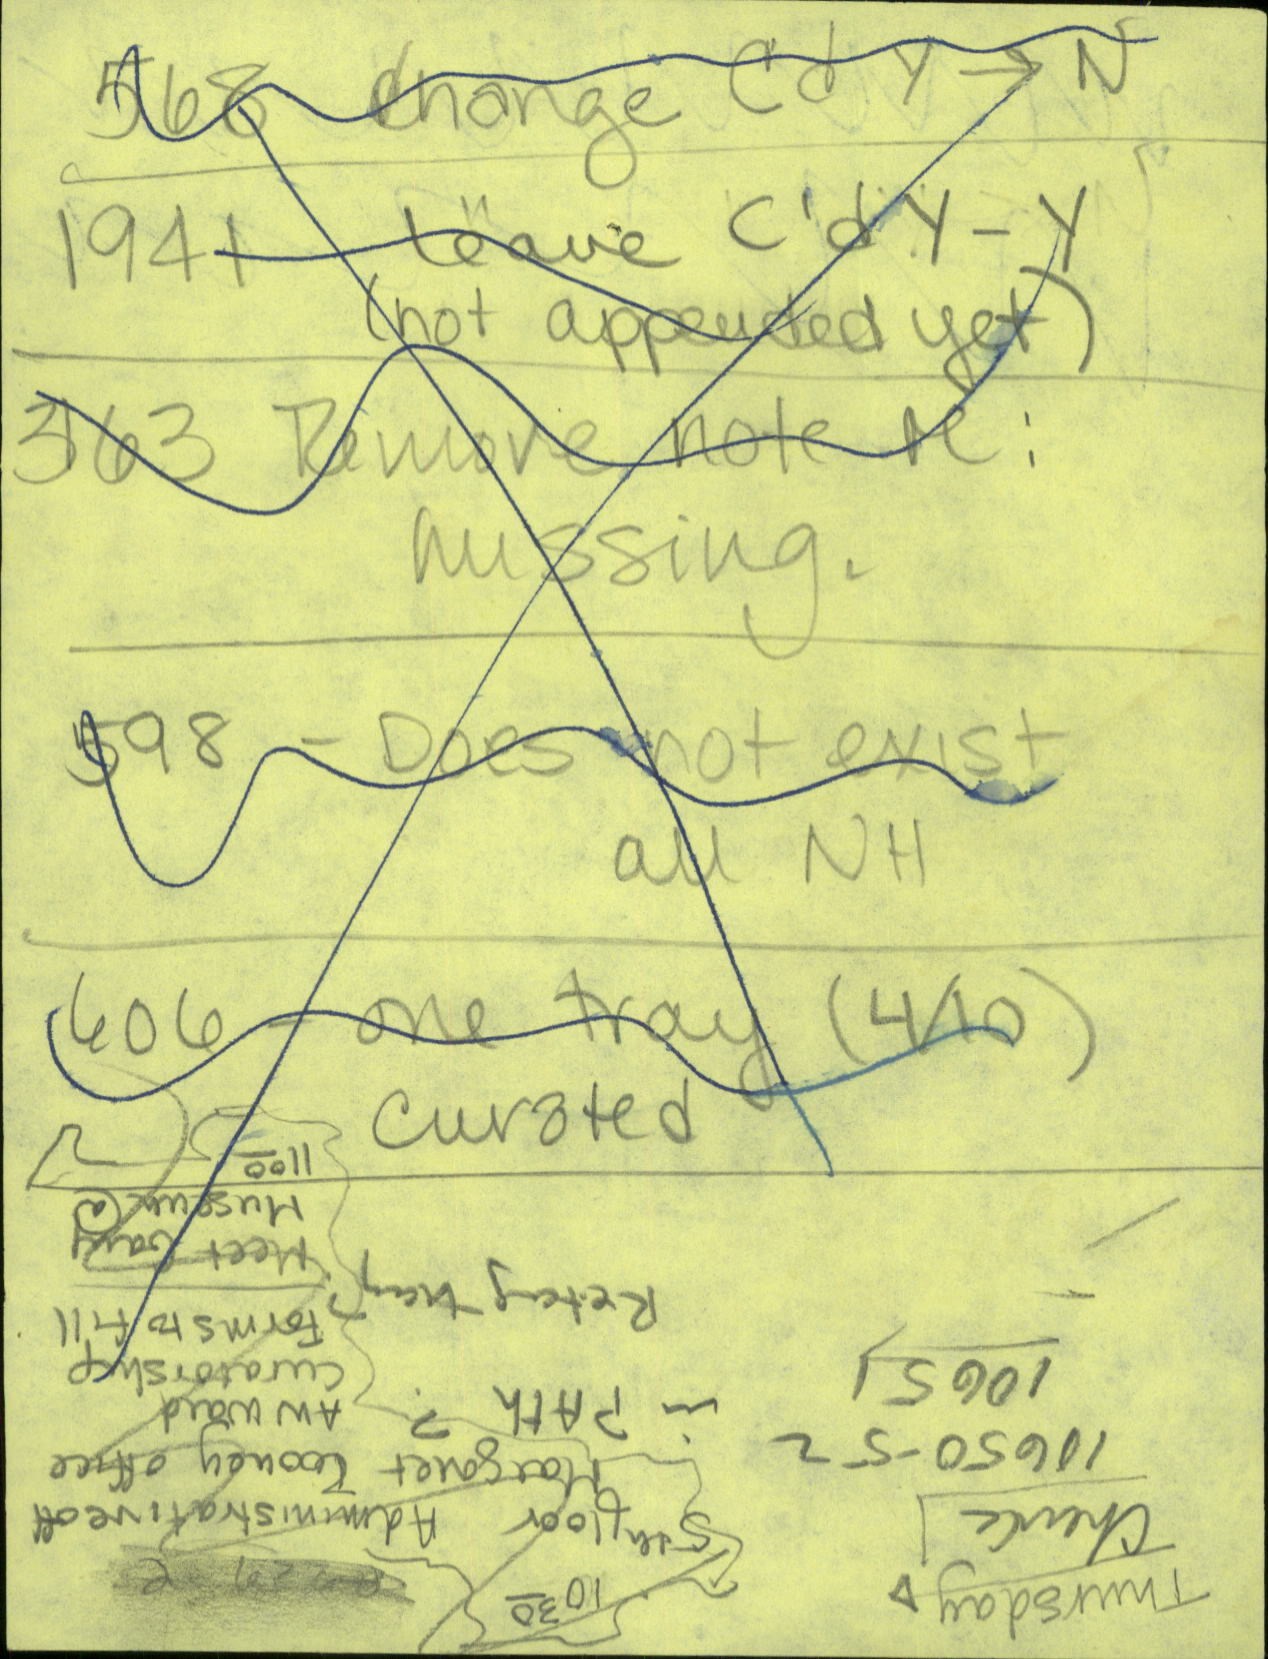 568 change C'd Y → N
1941 leave C'd Y - Y
(not appended yet)
3163 Remove note re:
missing.
598 - Does not exist
all NH
606 - one tray (4/10)
curated
Thursday
Check
10650-52
10651
1030
5th floor Administrative off
Margaret Cooney office
in PATH ? AW Ward
curatorship
forms to fill
Retag tray
Meet Gary
Museum @
1100